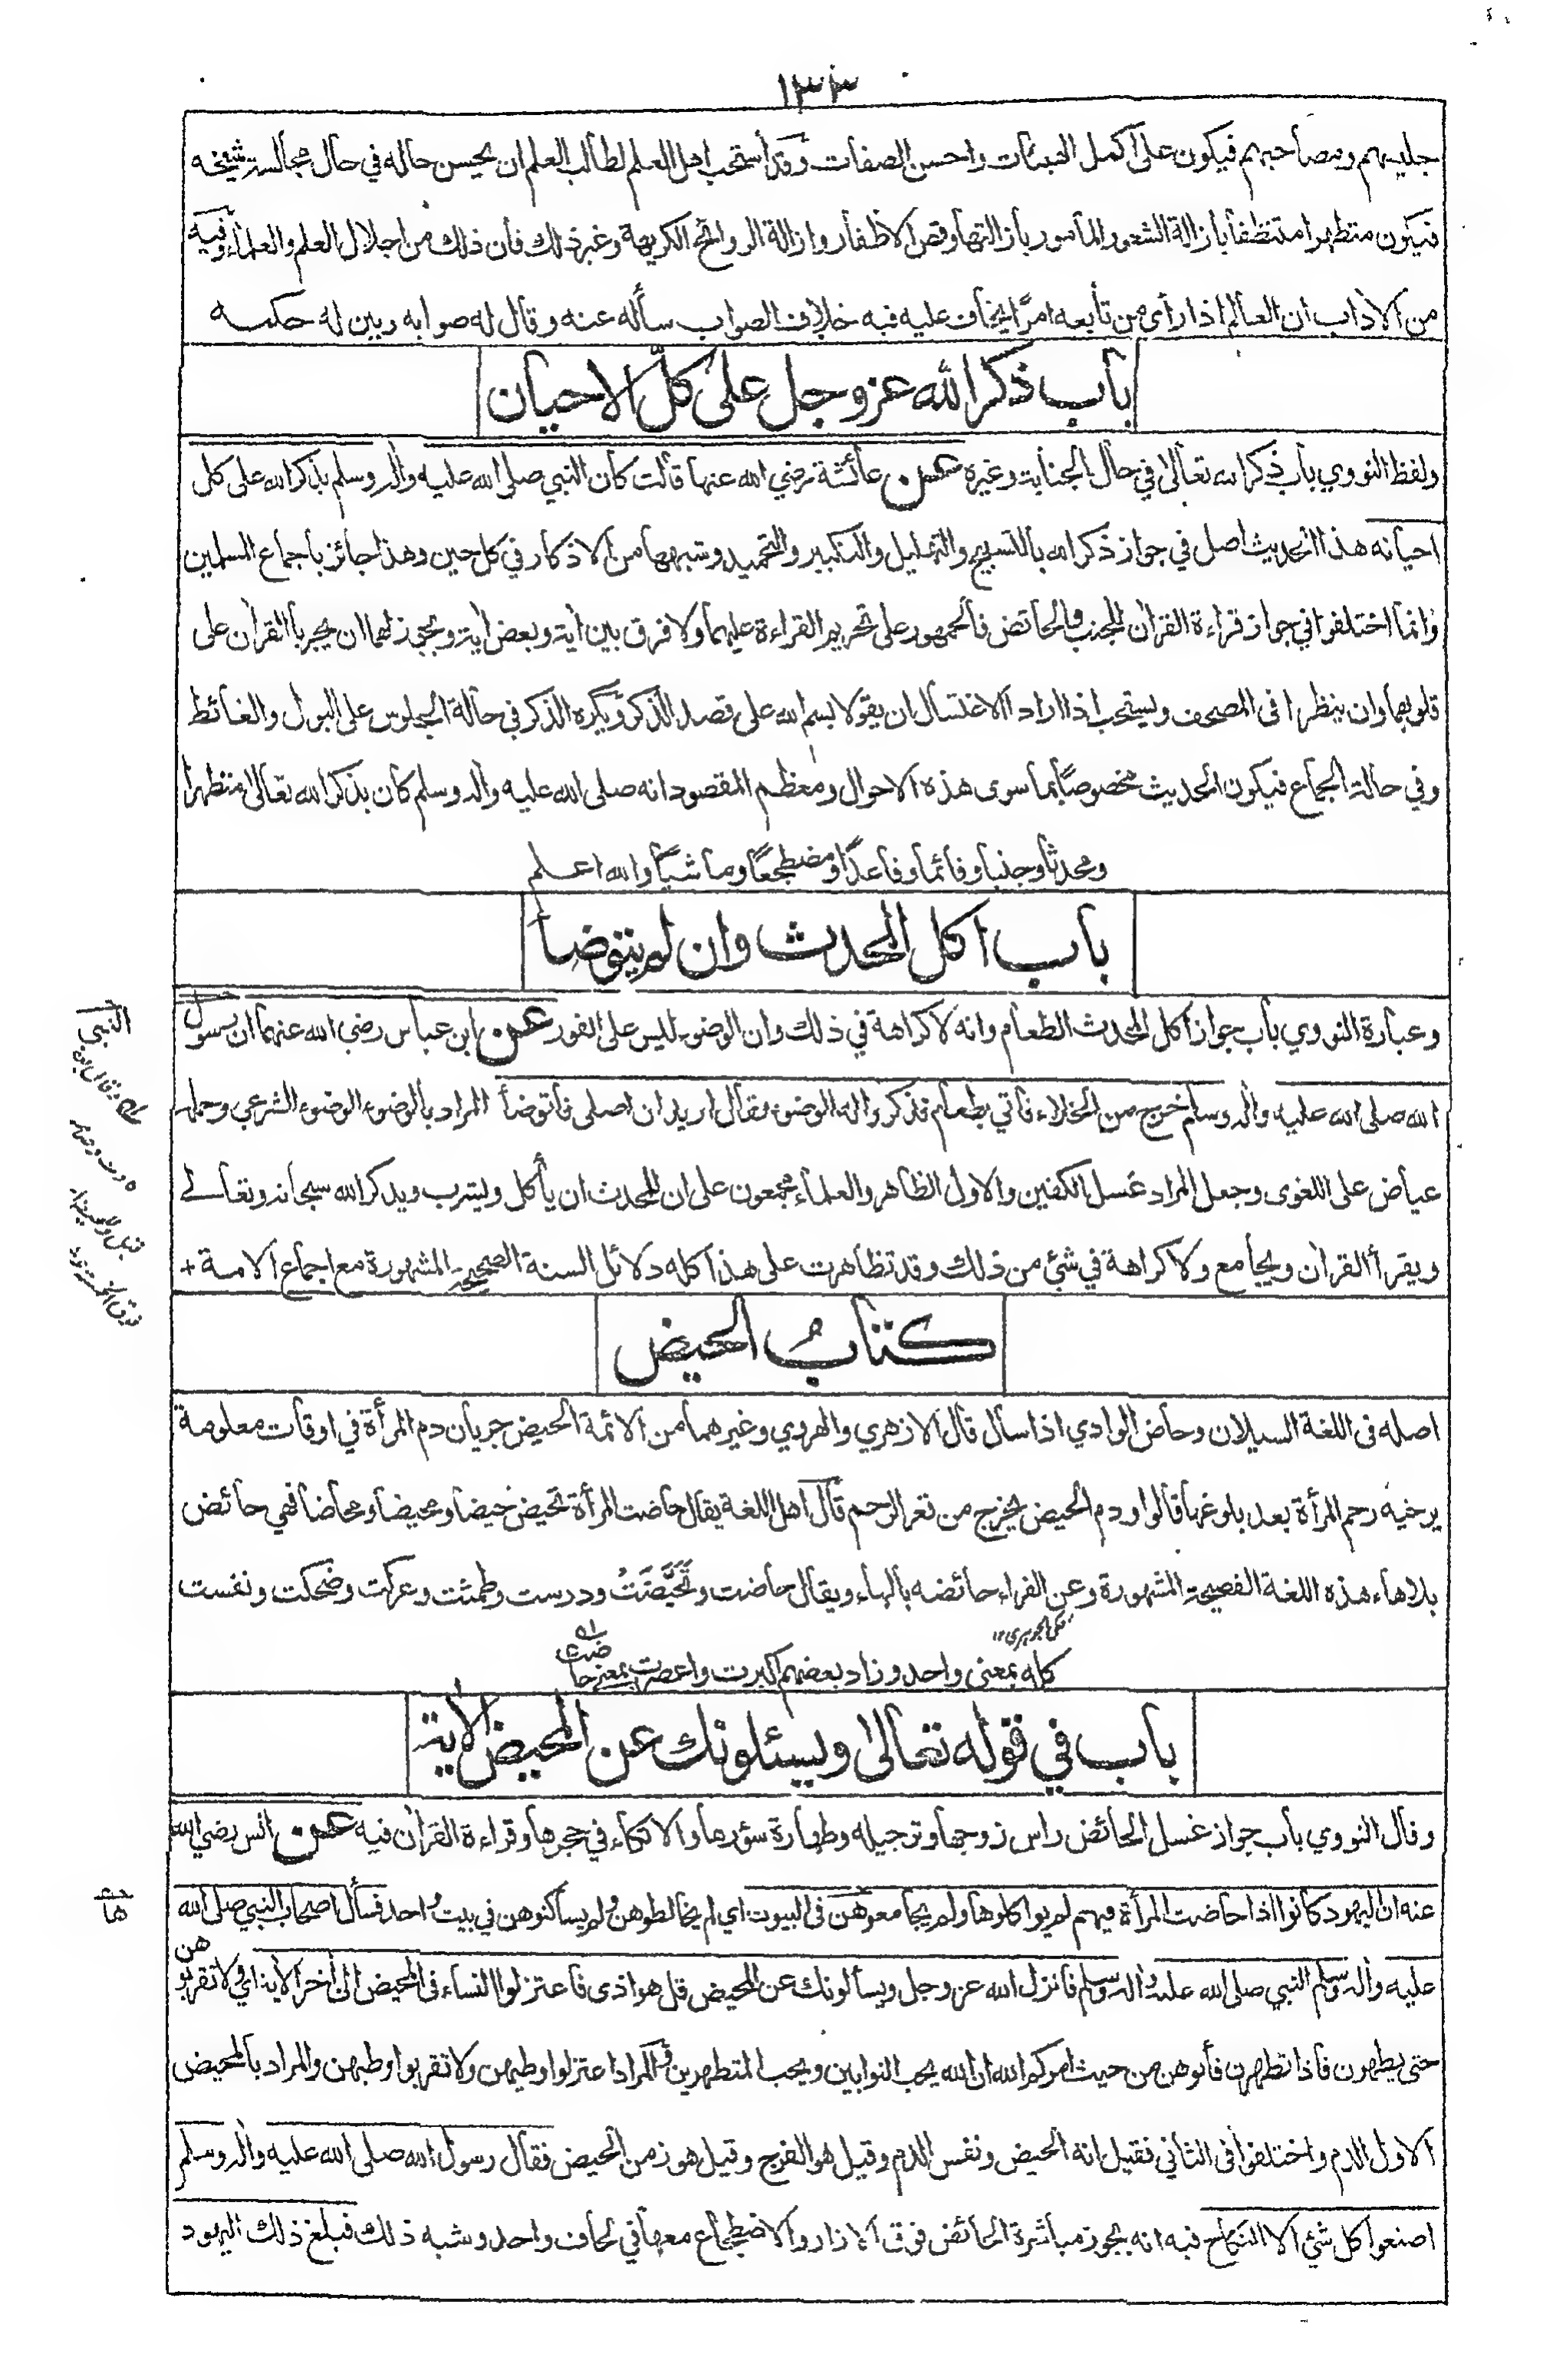 ١٣٣
جليسهم ومصاحبهم فيكون على اكمل الهيئات واحسن الصفات وقد استحب اهل العلم لطالب العلم ان يحسن حاله في حال مجالسته شيخه
فيكون متطهرا متنظفا بازالة الشعور المأمور بازالتها وقص الاظفار وازالة الروائح الكريهة وغير ذلك فان ذلك من اجلال العلم والعلماء وفيه
من الاداب ان العالم اذا رأى من تابعه امرًا يخاف عليه فيه خلاف الصواب سأله عنه وقال له صوابه وبين له حكمه
باب ذكر الله عز وجل على كلّ الاحيان
ولفظ النووي باب ذكر الله تعالى في حال الجنابة وغيره عن عائشة رضي الله عنها قالت كان النبي صلى الله عليه واله وسلم يذكر الله على كل
احيانه هذا الحديث اصل في جواز ذكر الله بالتسبيح والتهليل والتكبير والتحميد وشبهها من الاذكار في كل حين وهذا جائز باجماع المسلمين
وانما اختلفوا في جواز قراءة القران للجنب والحائض فالجمهور على تحريم القراءة عليهما ولا فرق بين اية وبعض اية ويجوز لهما ان يجريا القران على
قلوبهما وان ينظرا في المصحف ويستحب اذا ارادا الاغتسال ان يقولا بسم الله على قصد الذكر ويكره الذكر في حالة الجلوس على البول والغائط
وفي حالة الجماع فيكون الحديث مخصوصًا بما سوى هذه الاحوال ومعظم المقصود انه صلى الله عليه واله وسلم كان يذكر الله تعالى متطهرا
ومحدثا وجنبا وقائما وقاعدًا ومضطجعًا وماشيًا والله اعلم
باب اكل المحدث وان لم يتوضأ
وعبارة النووي باب جواز اكل المحدث الطعام وانه لا كراهة في ذلك وان الوضوء ليس على الفور عن ابن عباس رضي الله عنهما ان رسول
النبي
الله صلى الله عليه واله وسلم خرج من الخلاء فأتي بطعام فذكروا له الوضوء فقال اريد ان اصلي فاتوضأ المراد بالوضوء الوضوء الشرعي وحمله
عياض على اللغوى وجعل المراد غسل الكفين والاول الظاهر والعلماء مجمعون على ان للمحدث ان يأكل ويشرب ويذكر الله سبحانه وتعالى
ويقرأ القران ويجامع ولا كراهة في شئ من ذلك وقد تظاهرت على هذا كله دلائل السنة الصحيحة المشهورة مع اجماع الامة +
كتابُ الحيض
اصله في اللغة السيلان وحاض الوادي اذا سال قال الازهري والهروي وغيرهما من الائمة الحيض جريان دم المرأة في اوقات معلومة
يرخيه رحم المرأة بعد بلوغها قالوا ودم الحيض يخرج من قعر الرحم قال اهل اللغة يقال حاضت المرأة تحيض حيضا ومحيضا ومحاضا فهي حائض
بلا هاء هذه اللغة الفصيحة المشهورة وعن الفراء حائضه بالهاء ويقال حاضت وتَحَيَّضَتْ ودرست وطمثت وعركت وضحكت ونفست
كله بمعنى واحد وزاد بعضهم اكبرت واعصرت بمعنى حاضت
باب في قوله تعالى ويسئلونك عن المحيض الاية
وقال النووي باب جواز غسل الحائض راس زوجها وترجيله وطهارة سؤرها والاتكاء في حجرها وقراءة القران فيه عن انس رضي الله
عنه ان اليهود كانوا اذا حاضت المرأة فيهم لم يواكلوها ولم يجامعوهن في البيوت اي لم يخالطوهن ولم يساكنوهن في بيت واحد فسأل اصحاب النبي صلى الله
عليه واله وسلم النبي صلى الله عليه واله وسلم فانزل الله عز وجل ويسألونك عن المحيض قل هو اذى فاعتزلوا النساء في المحيض الى اخر الاية اي ولا تقربوهن
حتى يطهرن فاذا تطهرن فأتوهن من حيث امركم الله ان الله يحب التوابين ويحب المتطهرين والمراد اعتزلوا وطيهن ولا تقربوا وطيهن والمراد بالمحيض
الاول الدم واختلفوا في الثاني فقيل انه الحيض ونفس الدم وقيل هو الفرج وقيل هو زمن الحيض فقال رسول الله صلى الله عليه واله وسلم
اصنعوا كل شئ الا النكاح فيه انه يجوز مباشرة الحائض فوق الازار والاضطجاع معها في لحاف واحد وشبه ذلك فبلغ ذلك اليهود